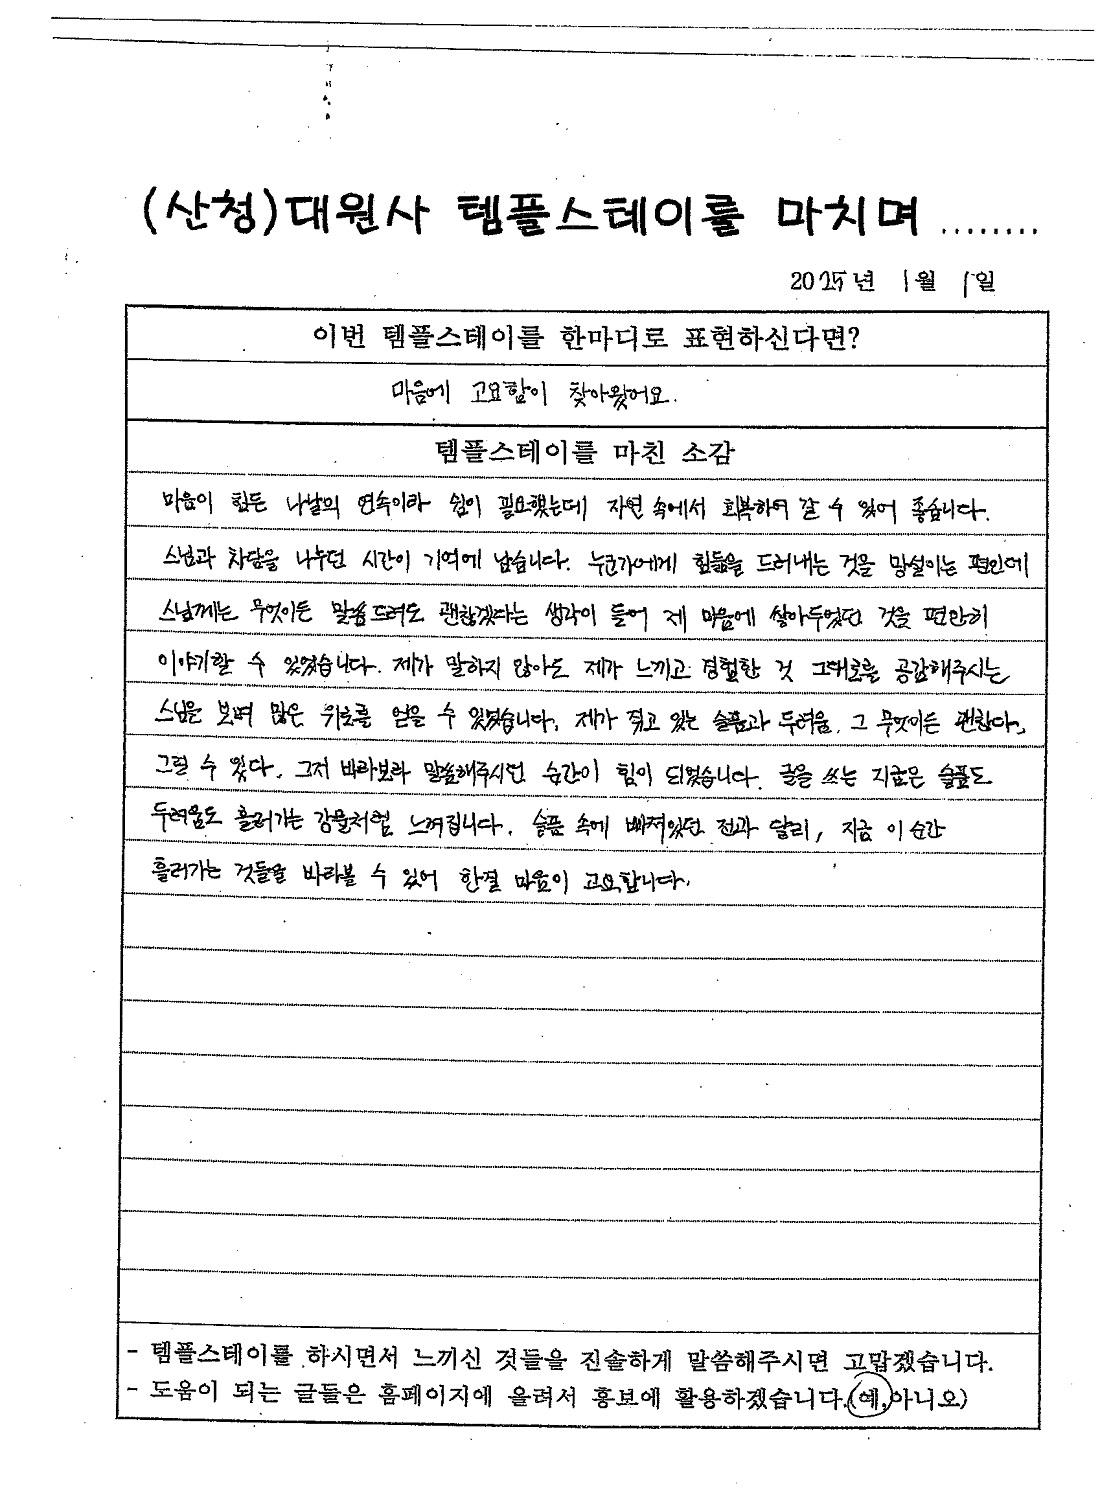 (산청)대원사 템플스테이를 마치며........
2025년 1월 1일
이번 템플스테이를 한마디로 표현하신다면?
마음에 고요함이 찾아왔어요.
템플스테이를 마친 소감
마음이 힘든 나날의 연속이라 쉼이 필요했는데 자연 속에서 회복하며 갈 수 있어 좋습니다.
스님과 차담을 나누던 시간이 기억에 남습니다. 누군가에게 힘듦을 드러내는 것을 망설이는 편인데
스님께는 무엇이든 말씀드려도 괜찮겠다는 생각이 들어 제 마음에 쌓아두었던 것을 편안히
이야기할 수 있었습니다. 제가 말하지 않아도 제가 느끼고 경험한 것 그대로를 공감해주시는
스님을 보며 많은 위로를 얻을 수 있었습니다. 제가 쥐고 있는 슬픔과 두려움, 그 무엇이든 괜찮다,
그럴 수 있다, 그저 바라보라 말씀해주시던 순간이 힘이 되었습니다. 글을 쓰는 지금은 슬픔도
두려움도 흘러가는 강물처럼 느껴집니다. 슬픔 속에 빠져있던 전과 달리, 지금 이 순간
흘러가는 것들을 바라볼 수 있어 한결 마음이 고요합니다.
- 템플스테이를 하시면서 느끼신 것들을 진솔하게 말씀해주시면 고맙겠습니다.
- 도움이 되는 글들은 홈페이지에 올려서 홍보에 활용하겠습니다.(예,아니오)